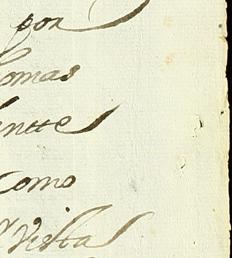 por
omas
entte
como
Vista